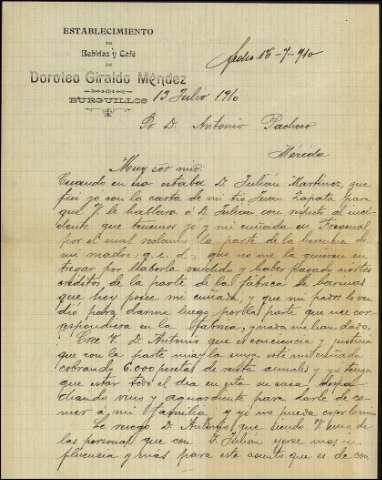 ESTABLECIMIENTO
DE
Bebidas y Café
DE
Doroteo Giraldo Méndez
BURGUILLOS
16-7-910
13 Julio 1910
Sr D. Antonio Pacheco
Mérida
Muy sor mio
Cuando en esa estaba D. Julián Martínez, que
fui yo con la carta de mi tio Juan Zapata para
que V. le hablara á D. Julian con respecto al
que tenemos yo y mi cuñada en Fregenal
por el cual la parte de la herencia de
mi madre, q. e. d. que no me la quieren en-
tregar por haberla vendido y haber pagado
créditos de la parte de la fabrica de harinas
que hoy posee mi cuñada, y que mi padre ven-
dió para darme luego por la parte que me co-
rrespondiera en la fabrica, y nada me han dado,
¿Cree V. D. Antonio que es conciencia y justicia
que con la parte mia y la suya esté
cobrando 6.000 pesetas de renta anuales y yo tenga
que estar todo el dia en esta su casa
chando vino y aguardiente para darle de co-
mer á mi familia y yo no pueda
Le ruego D. Antonio que siendo V. una de
las personas que con D. Julian ejerce mas in-
fluencia y mas para este asunto que es de con